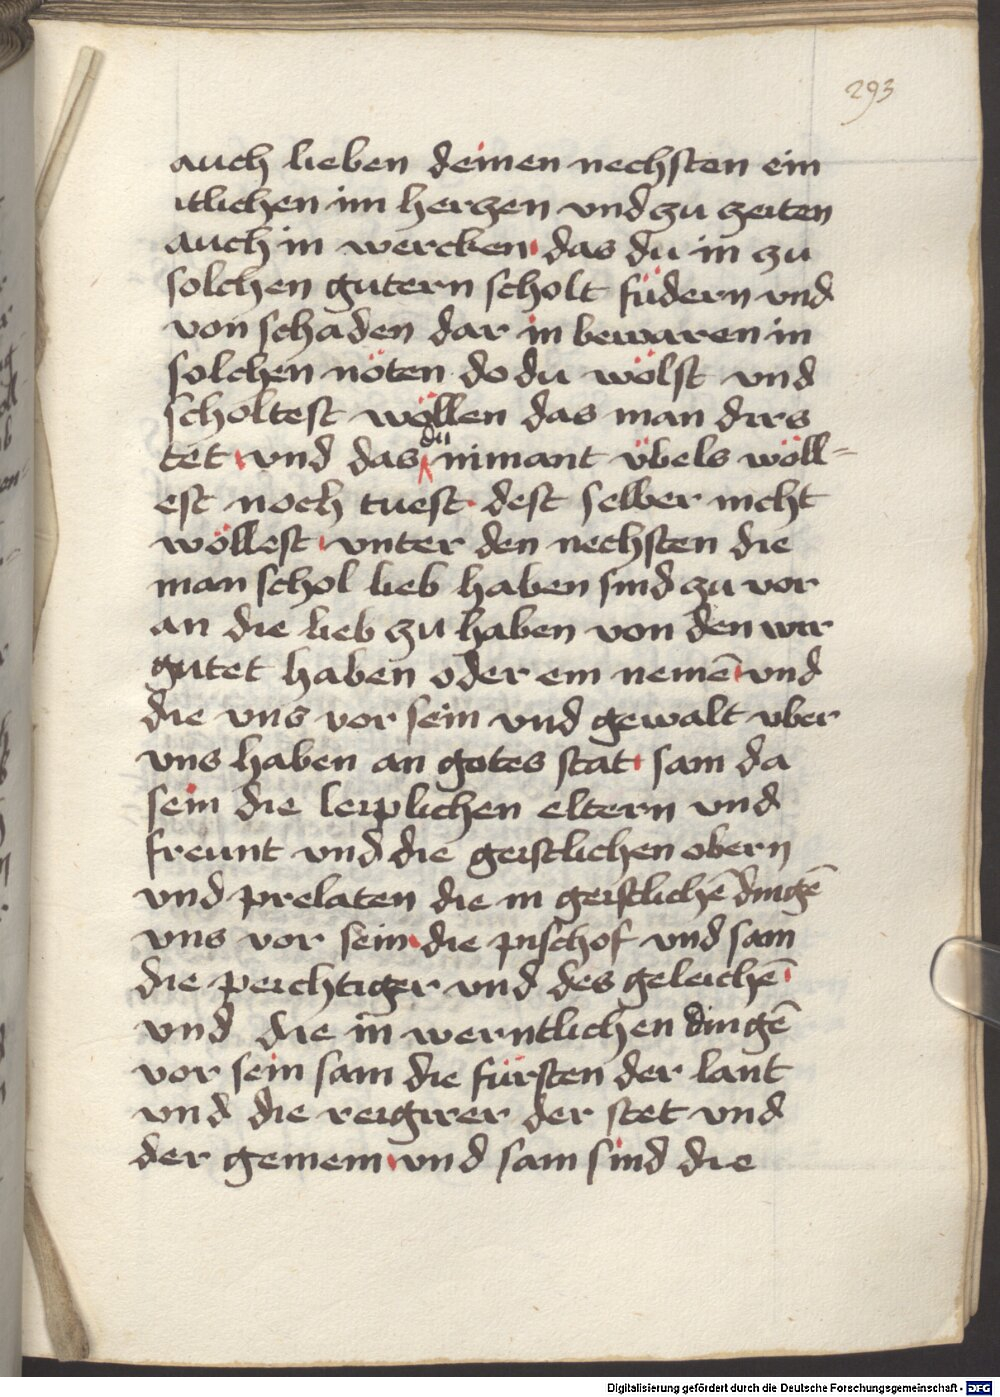 293
auch lieben deinen nechsten ein
itlichen im herzen vnd zu zeiten
auch in wercken das du in zu
solchen gutern scholt füdern vnd
von schaden dar in bewaren in
solchen nöten do du wölst vnd
scholtest wöllen das man dirs
du
tet vnd das nimant übels wöll-
est noch tuest dest selber nicht
wöllest vnter den nechsten die
man schol lieb haben sind zu vor
an die lieb zu haben von den wir
gutet haben oder ein nemē vnd
die vns vor sein vnd gewalt vber
vns haben an gotes stat sam da
sein die leiplichen eltern vnd
freunt vnd die geistlichen obern
vnd prelaten die in geistlichē dingē
vns vor sein die pischof vnd sam
die peichtiger vnd des geleichē
vnd die in werntlichen dingē
vor sein sam die fürsten der lant
vnd die reigirer der stet vnd
der gemein vnd sam sind die
Digitalisierung gefördert durch die Deutsche Forschungsgemeinschaft - DFG